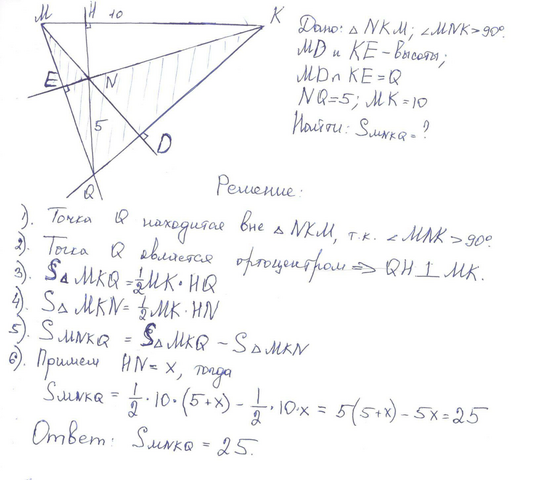 M H 10 K
E N
5
D
Q
Дано: △ NKM; ∠MNK>90°.
MD и KE – высоты;
MD∩KE=Q
NQ=5; MK=10
Найти: SMNKQ=?
Решение:
1). Точка Q находится вне △ NKM, т.к. ∠MNK>90°.
2). Точка Q является ортоцентром ⇒ QH⊥MK.
3). S△MKQ=½MK·HQ
4). S△MKN=½MK·HN
5). SMNKQ = S△MKQ – S△MKN
6). Примем HN=x, тогда
SMNKQ = 1/2·10·(5+x) – 1/2·10·x = 5(5+x) – 5x=25
Ответ: SMNKQ = 25.